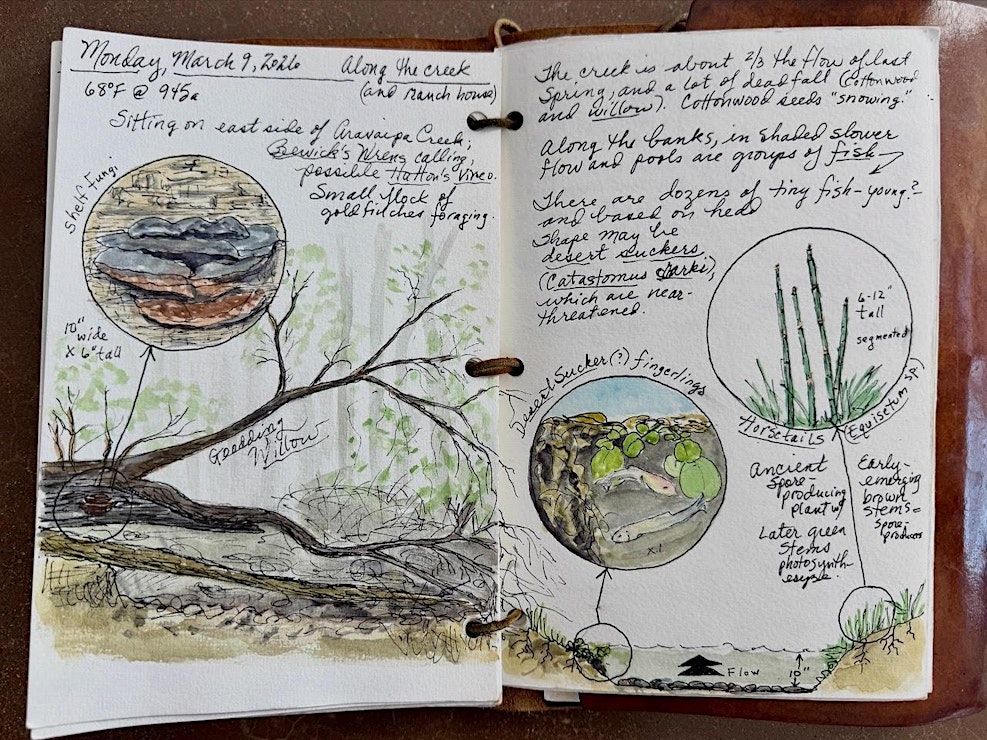 Monday, March 9, 2026
Along the creek
(and Ranch house)
68°F @ 945a
Sitting on east side of Aravaipa Creek;
Bewick's Wrens calling,
possible Hutton's Vireo.
Small flock of
goldfinches foraging.
Shelf Fungi
10"
wide
x 6" tall
Goodding
Willow
The creek is about 2/3 the flow of last
Spring, and a lot of deadfall (Cottonwood
and willow). Cottonwood seeds "snowing."
Along the banks, in shaded slower
flow and pools are groups of fish
There are dozens of tiny fish - young?
and based on head
shape may be
desert suckers
(Catastomus clarki),
which are near-
threatened.
6-12"
tall
segmented
Horsetails
Equisetum sp.
Desert Sucker (?) fingerlings
x.1
Ancient
spore-
producing
plant w/
Later green
stems
photosynth-
Early-
emerging
brown
stems =
spore-
producers
Flow
10"